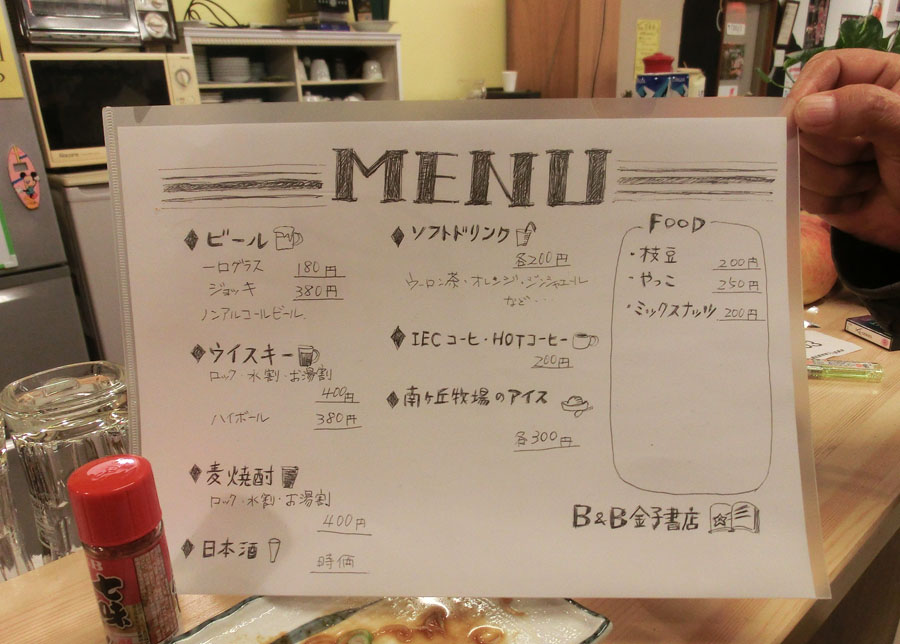 MENU
ビール
一口グラス 180円
ジョッキ 380円
ノンアルコールビール
ウイスキー
ロック・水割・お湯割
400円
ハイボール 380円
麦焼酎
ロック・水割・お湯割
400円
日本酒 時価
ソフトドリンク
各200円
ウーロン茶・オレンジ・ジンジャエール
など・・・
IECコーヒ・HOTコーヒー
200円
南ヶ丘牧場のアイス
各300円
FOOD
・枝豆 200円
・やっこ 250円
・ミックスナッツ 200円
B&B金子書店